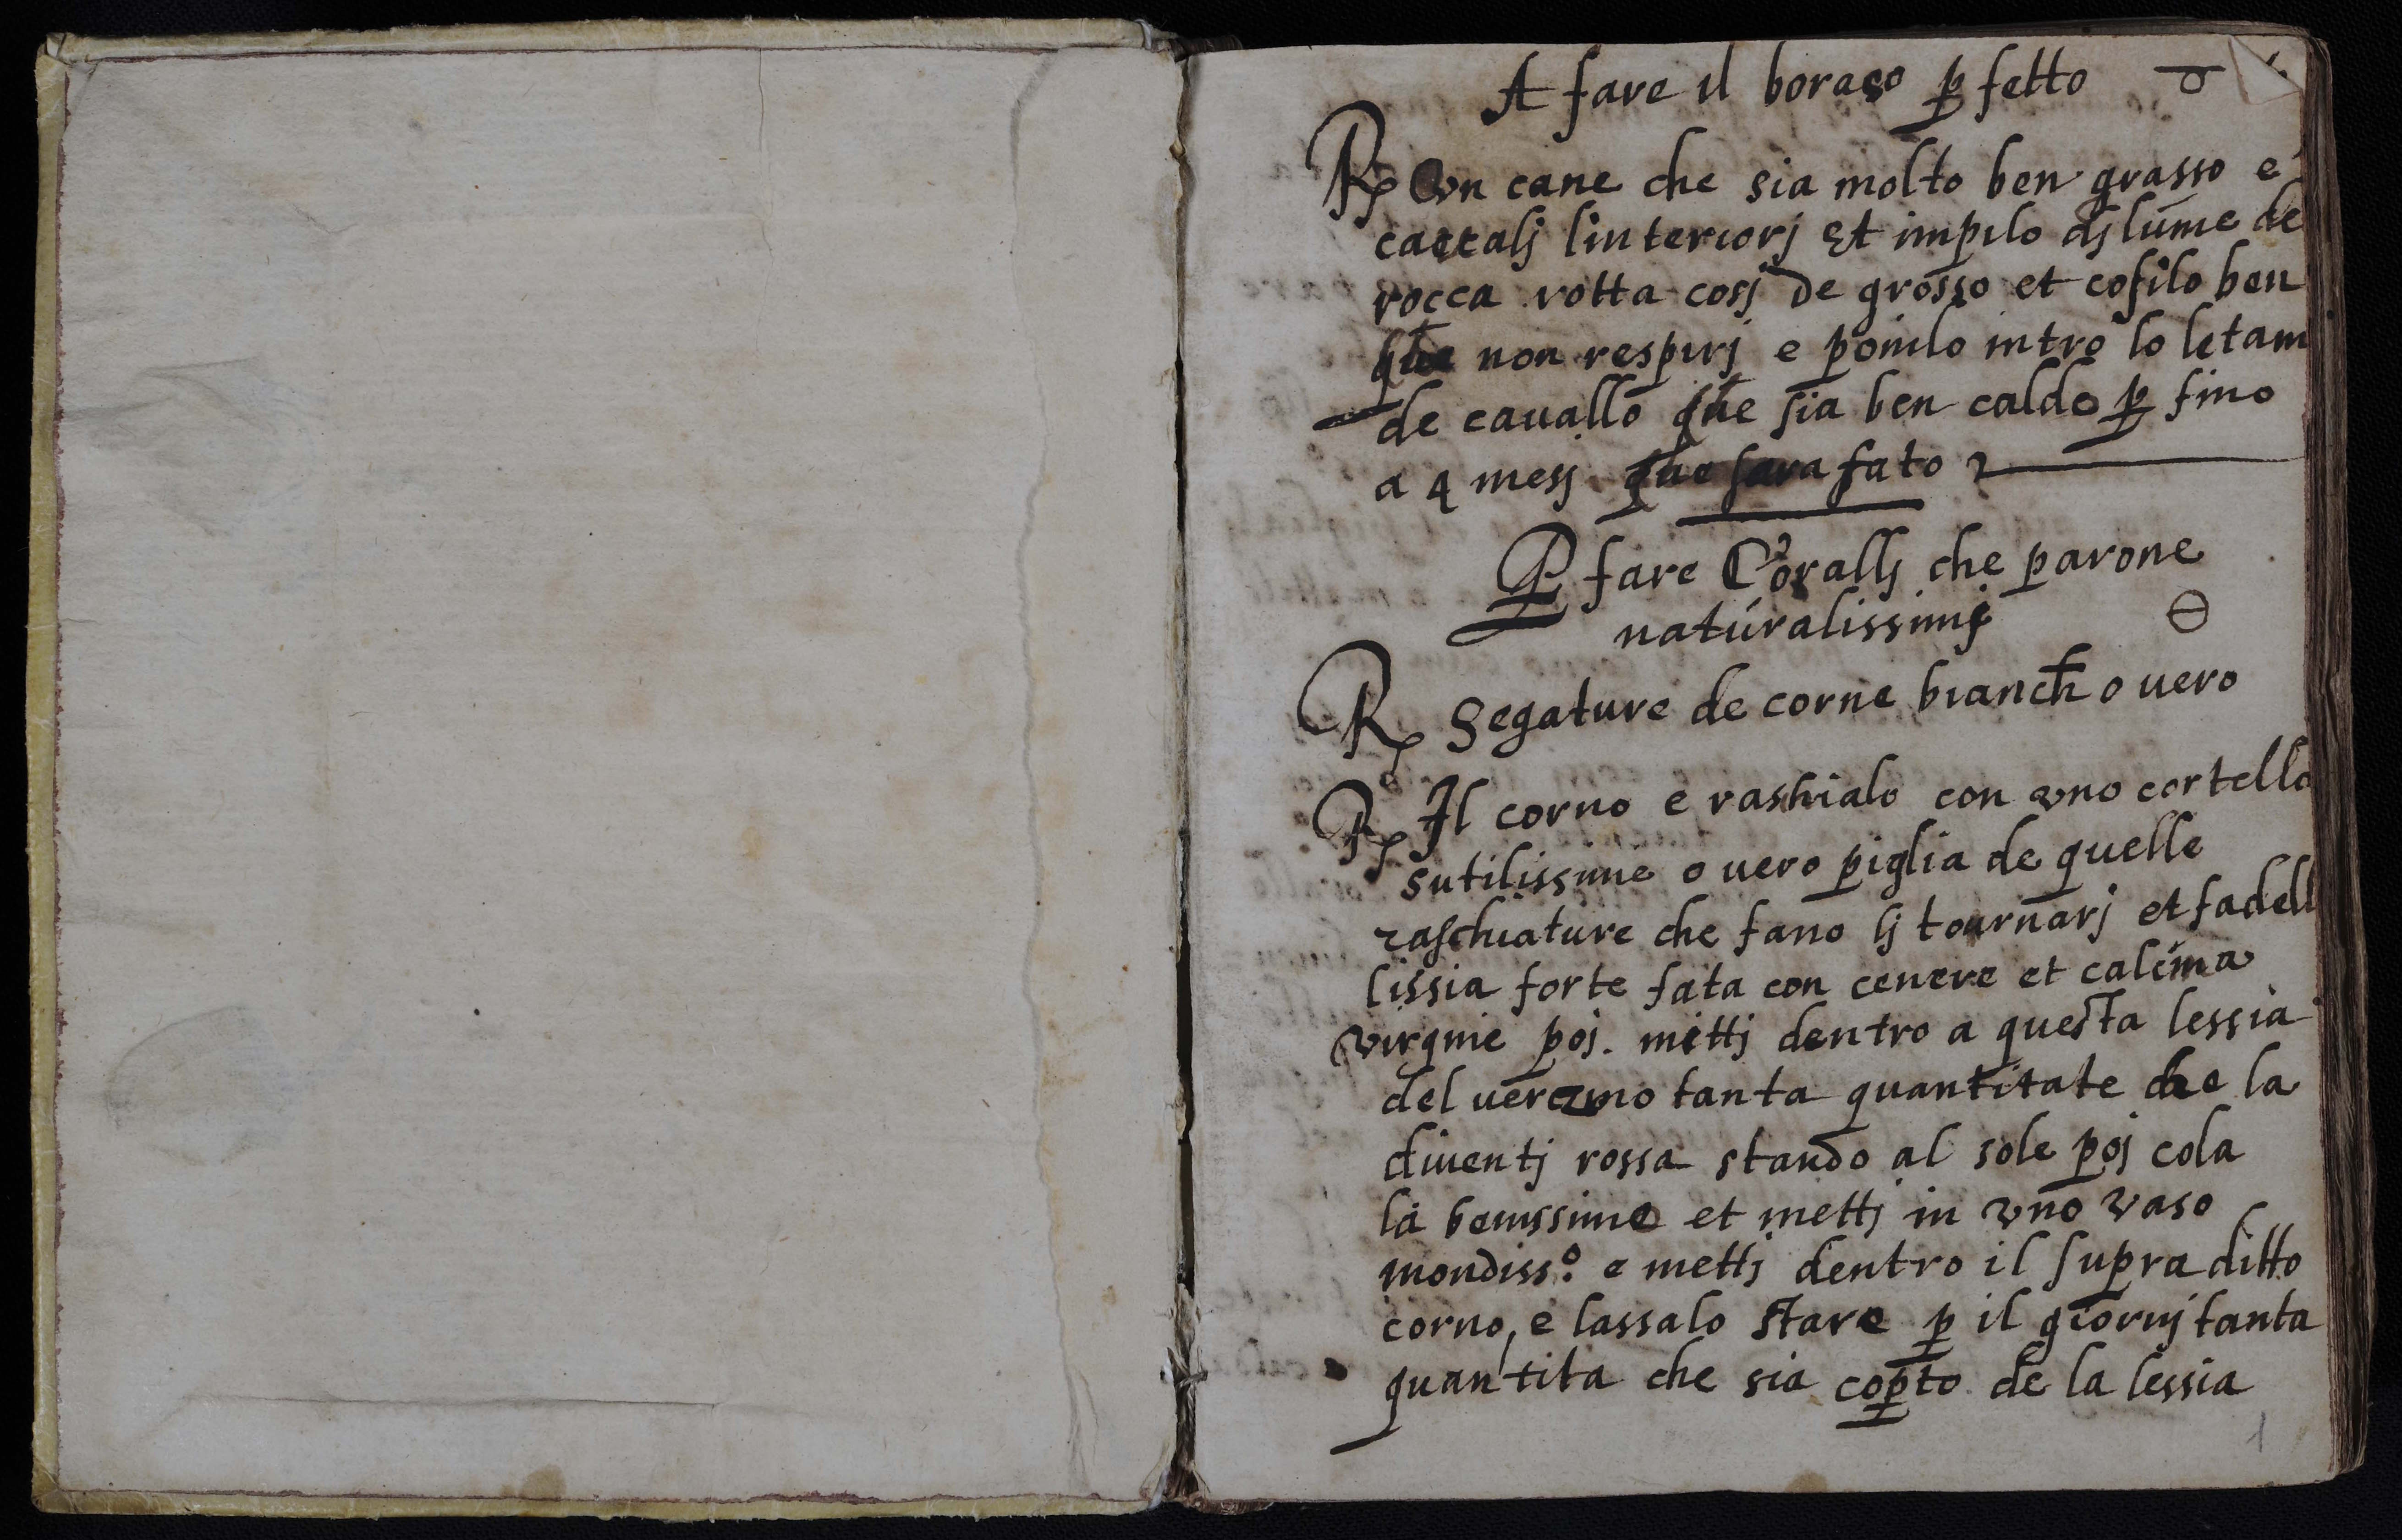 A fare il boraso p fetto
Rp Un cane che sia molto ben grasso e
caccalj linteriorj Et impilo dj lume de
rocca rotta cosj de grosso et cosilo ben
que non respirj e ponilo intro lo letam
de cauallo que sia ben caldo p fino
a 4 mesj que sara fato
P fare Corallj che parone
naturalissimj
Rp Segature de corne bianch o uero
Rp Il corno e rashialo con uno cortello
sutilissime o uero piglia de quelle
raschiature che fano lj tournarj et fa dell
lissia forte fata con cenere et calcina
virgine poj. mettj dentro a questa lessia
del uerzino tanta quantitate che la
diuentj rossa stando al sole poj cola
la benissimo et mettj in uno vaso
mondiss.º e mettj dentro il supra ditto
corno, e lassalo stare p il giornj tanta
quantita che sia copto de la lessia
1